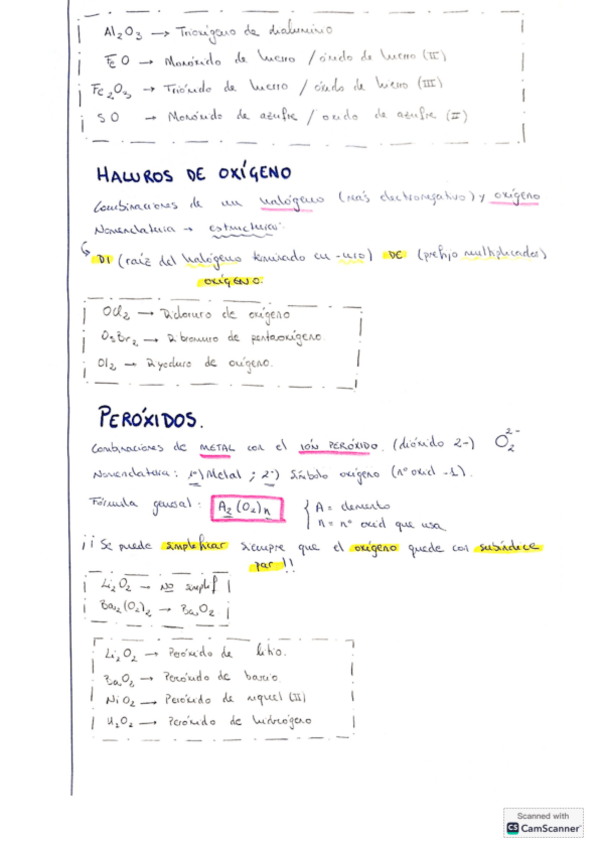 Al₂O₃ → Trioxígeno de dialuminio
FeO → Monóxido de hierro / óxido de hierro (II)
Fe₂O₃ → Trióxido de hierro / óxido de hierro (III)
SO → Monóxido de azufre / oxido de azufre (II)
HALUROS DE OXÍGENO
Combinaciones de un halógeno (más electronegativo) y oxígeno
Nomenclatura → estructura:
↳ DI (raíz del halógeno terminado en -uro) DE (prefijo multiplicador)
OXÍGENO:
OCl₂ → Dicloruro de oxígeno
O₅Br₂ → Dibromuro de pentaoxígeno
OI₂ → Diyoduro de oxígeno.
PERÓXIDOS.
Combinaciones de METAL con el IÓN PERÓXIDO. (dióxido 2-) O₂²⁻
Nomenclatura: 1º) Metal ; 2º) Símbolo oxígeno (nº oxid -1).
Fórmula general: A₂(O₂)n { A = elemento
n = nº oxid que usa
¡¡Se puede simplificar siempre que el oxígeno quede con subíndice
par!!
Li₂O₂ → No simplif
Ba₂(O₂)₂ → BaO₂
Li₂O₂ → Peróxido de litio.
BaO₂ → Peróxido de bario.
NiO₂ → Peróxido de níquel (II)
H₂O₂ → Peróxido de hidrógeno
Scanned with
CS CamScanner